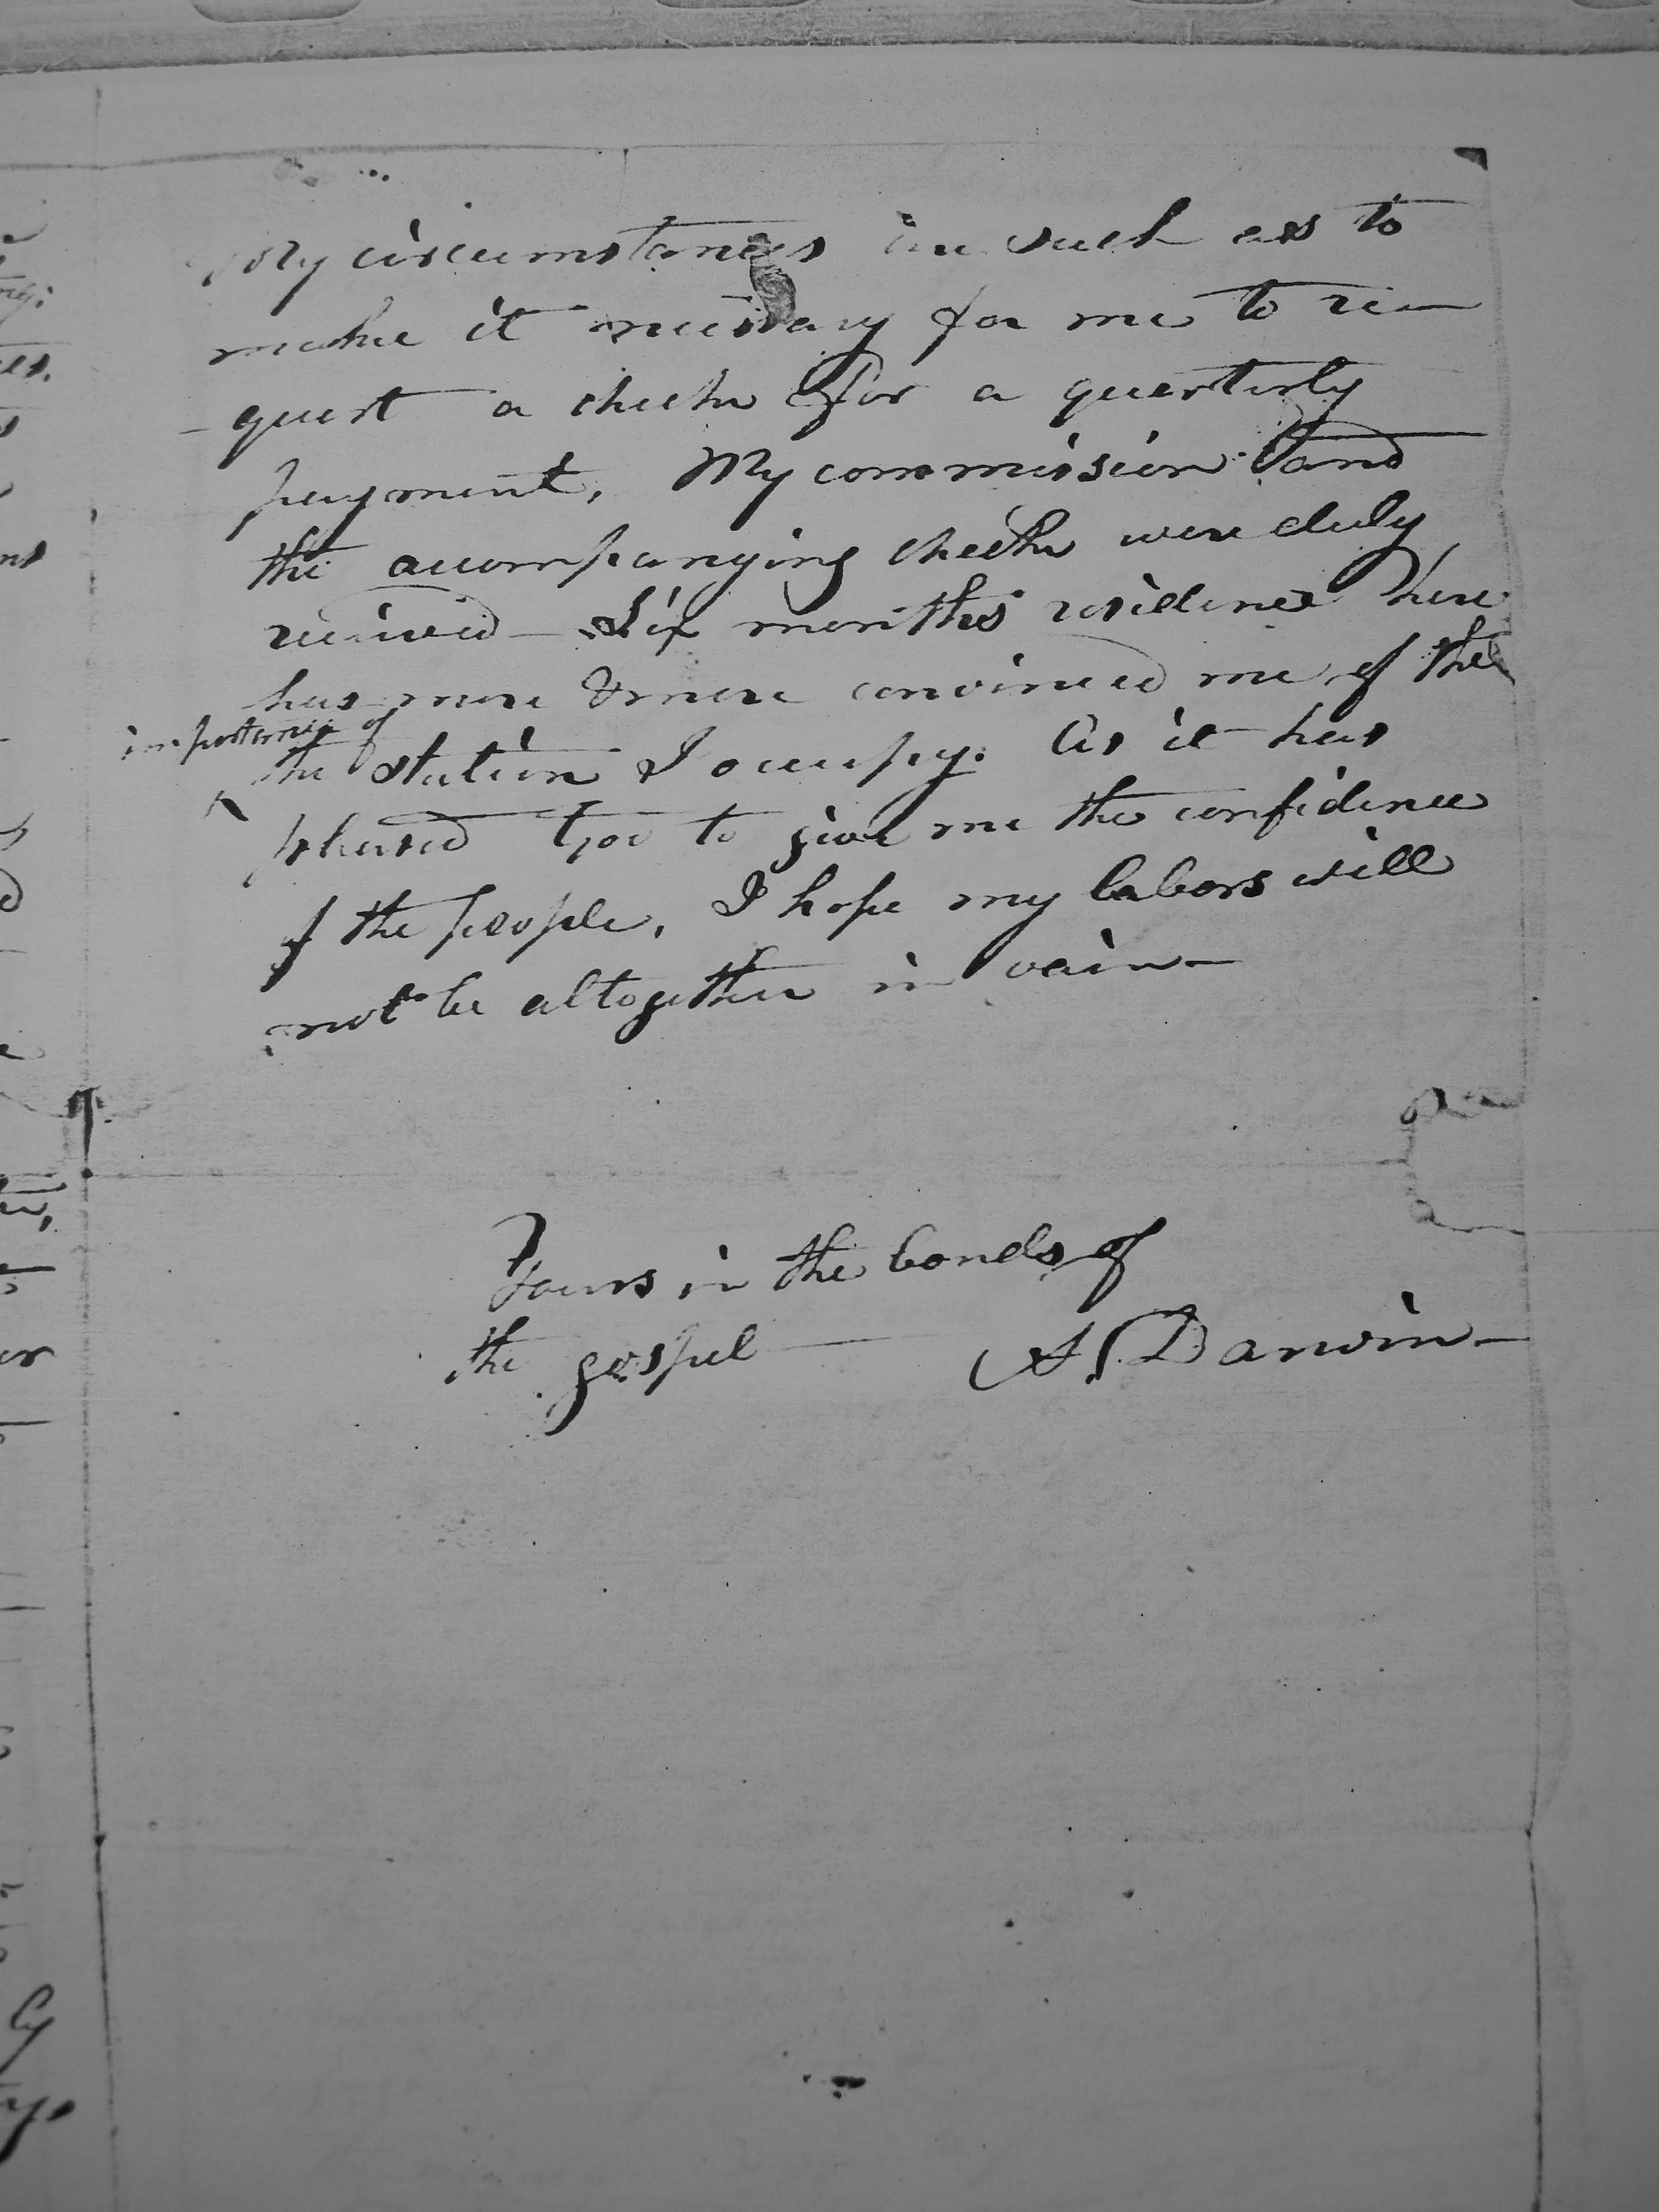 My circumstances are such as to
make it necessary for me to re-
-quest a check for a quarterly
payment. My commission and
the acompanying check were duly
received - Six months residence here
has more & more convinced me of the
importance of
the station I occupy. As it has
pleased God to give me the confidence
of the people, I hope my labors will
not be altogether in vain -
Yours in the bonds of
the gospel - A Darwin -